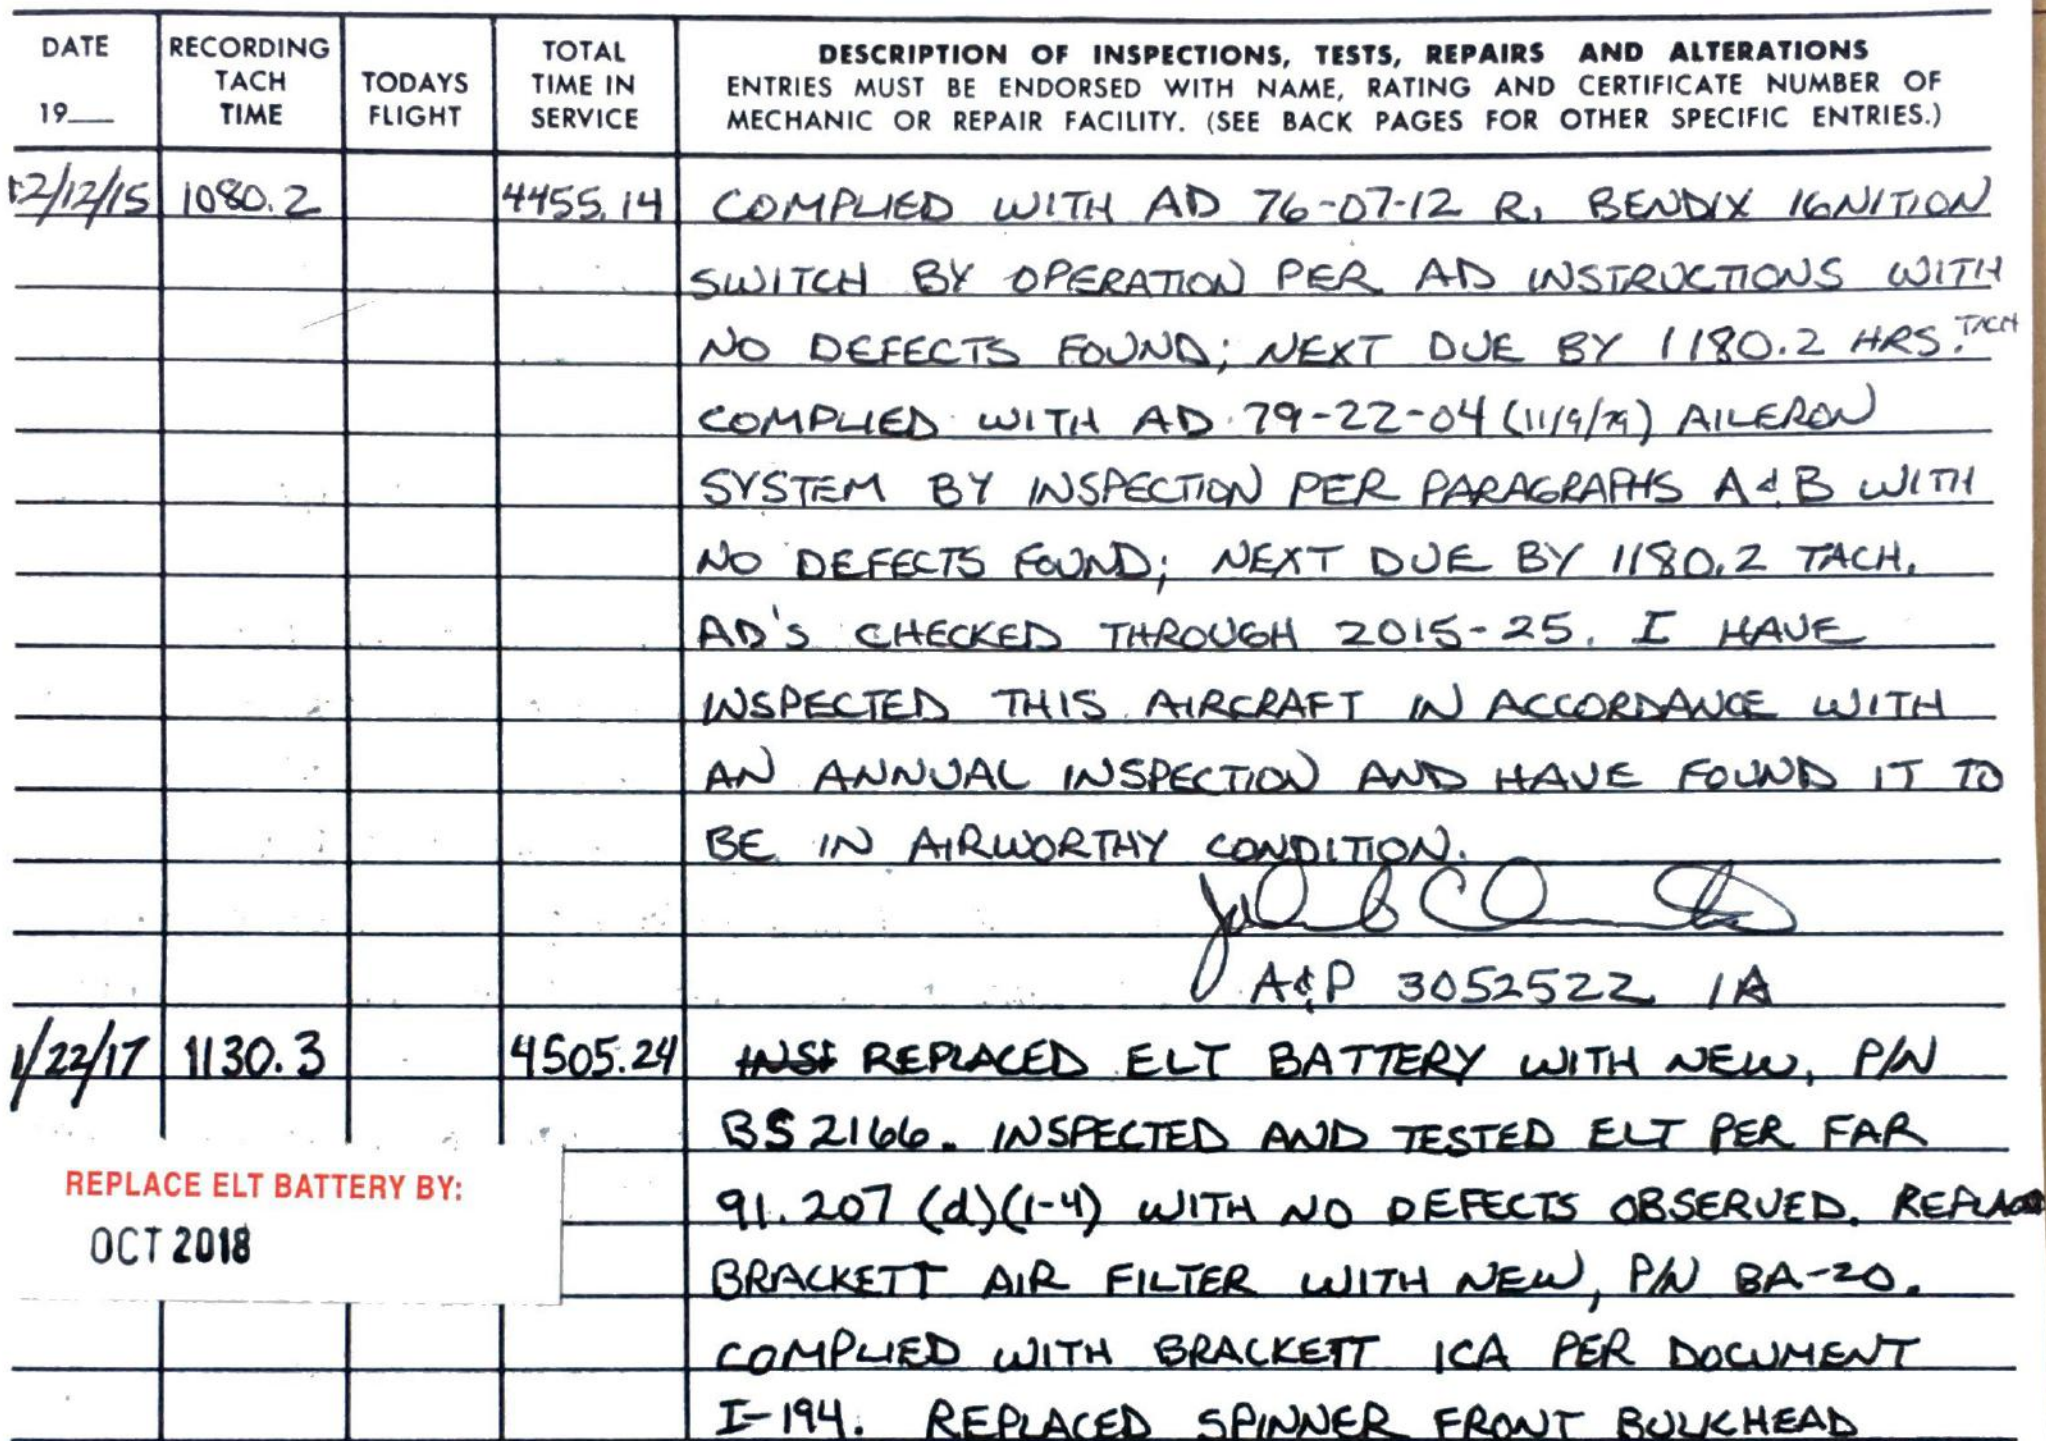 DATE RECORDING TODAYS TOTAL DESCRIPTION OF INSPECTIONS, TESTS, REPAIRS AND ALTERATIONS
TACH FLIGHT TIME IN ENTRIES MUST BE ENDORSED WITH NAME, RATING AND CERTIFICATE NUMBER OF
19__ TIME SERVICE MECHANIC OR REPAIR FACILITY. (SEE BACK PAGES FOR OTHER SPECIFIC ENTRIES.)
12/12/15 1080.2 4455.14 COMPLIED WITH AD 76-07-12 R1 BENDIX IGNITION
SWITCH BY OPERATION PER AD INSTRUCTIONS WITH
NO DEFECTS FOUND; NEXT DUE BY 1180.2 HRS. TACH
COMPLIED WITH AD 79-22-04 (11/9/79) AILERON
SYSTEM BY INSPECTION PER PARAGRAPHS A & B WITH
NO DEFECTS FOUND; NEXT DUE BY 1180.2 TACH.
AD'S CHECKED THROUGH 2015-25. I HAVE
INSPECTED THIS AIRCRAFT IN ACCORDANCE WITH
AN ANNUAL INSPECTION AND HAVE FOUND IT TO
BE IN AIRWORTHY CONDITION.
A&P 3052522 IA
1/22/17 1130.3 4505.24 REPLACED ELT BATTERY WITH NEW, P/N
BS2166. INSPECTED AND TESTED ELT PER FAR
REPLACE ELT BATTERY BY:
91.207 (d)(1-4) WITH NO DEFECTS OBSERVED.
OCT 2018
BRACKETT AIR FILTER WITH NEW, P/N BA-20.
COMPLIED WITH BRACKETT ICA PER DOCUMENT
I-194. REPLACED SPINNER FRONT BULKHEAD